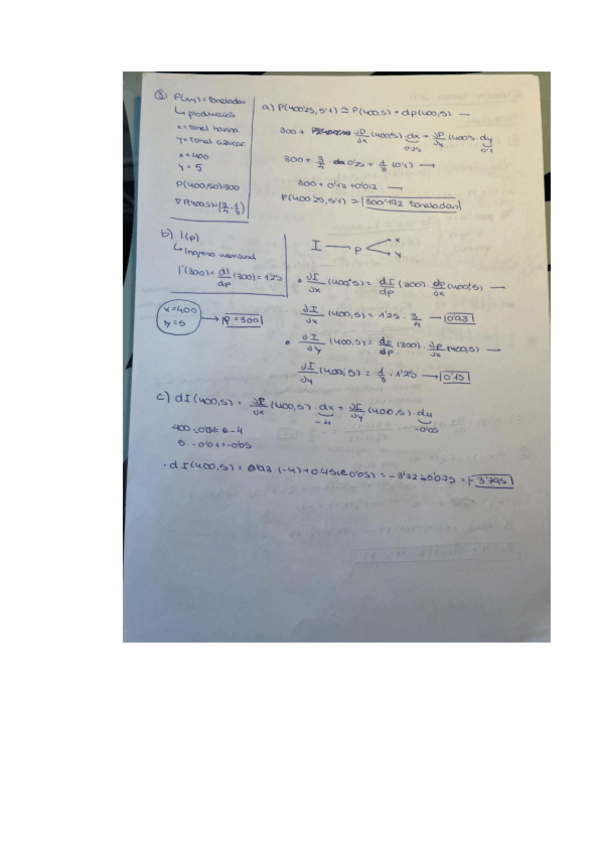 P(x,y) = toneladas
↳ producción
x = tonel harina
y = tonel azucar
x = 400
y = 5
P(400,50)=300
∇P(400,5)=(3/4, 1/8)
a) P(400'25, 5'1) ≃ P(400,5) + dp(400,5) →
300 + ∂P/∂x (400,5) dx + ∂P/∂y (400,5) dy
0'25 0'1
300 + 3/4 · 0'25 + 1/8 (0'1) →
300 + 0'18 + 0'012 →
P(400'25, 5'1) = 300'192 toneladas
b) I(p)
↳ Ingreso mensual
I'(300) = dI/dp (300) = 1'25
x=400
y=5
→ P=300
I → P < x
y
• ∂I/∂x (400,5) = dI/dp (300) · ∂P/∂x (400,5) →
∂I/∂x (400,5) = 1'25 · 3/4 → 0'93
• ∂I/∂y (400,5) = dI/dp (300) · ∂P/∂x (400,5) →
∂I/∂y (400,5) = 1/8 · 1'25 → 0'15
c) dI(400,5) = ∂P/∂x (400,5) · dx + ∂I/∂y (400,5) · dy
-4 -0'05
5 · -0'01 = -0'05
· dI(400,5) = 0'93 (-4) + 0'15 (-0'05) = -3'72 - 0'075 = -3'795